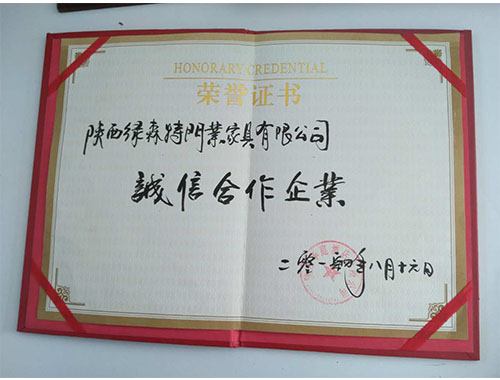 HONORARY CREDENTIAL
荣誉证书
陕西绿森特門業家具有限公司
誠信合作企業
二零一四年八月十六日